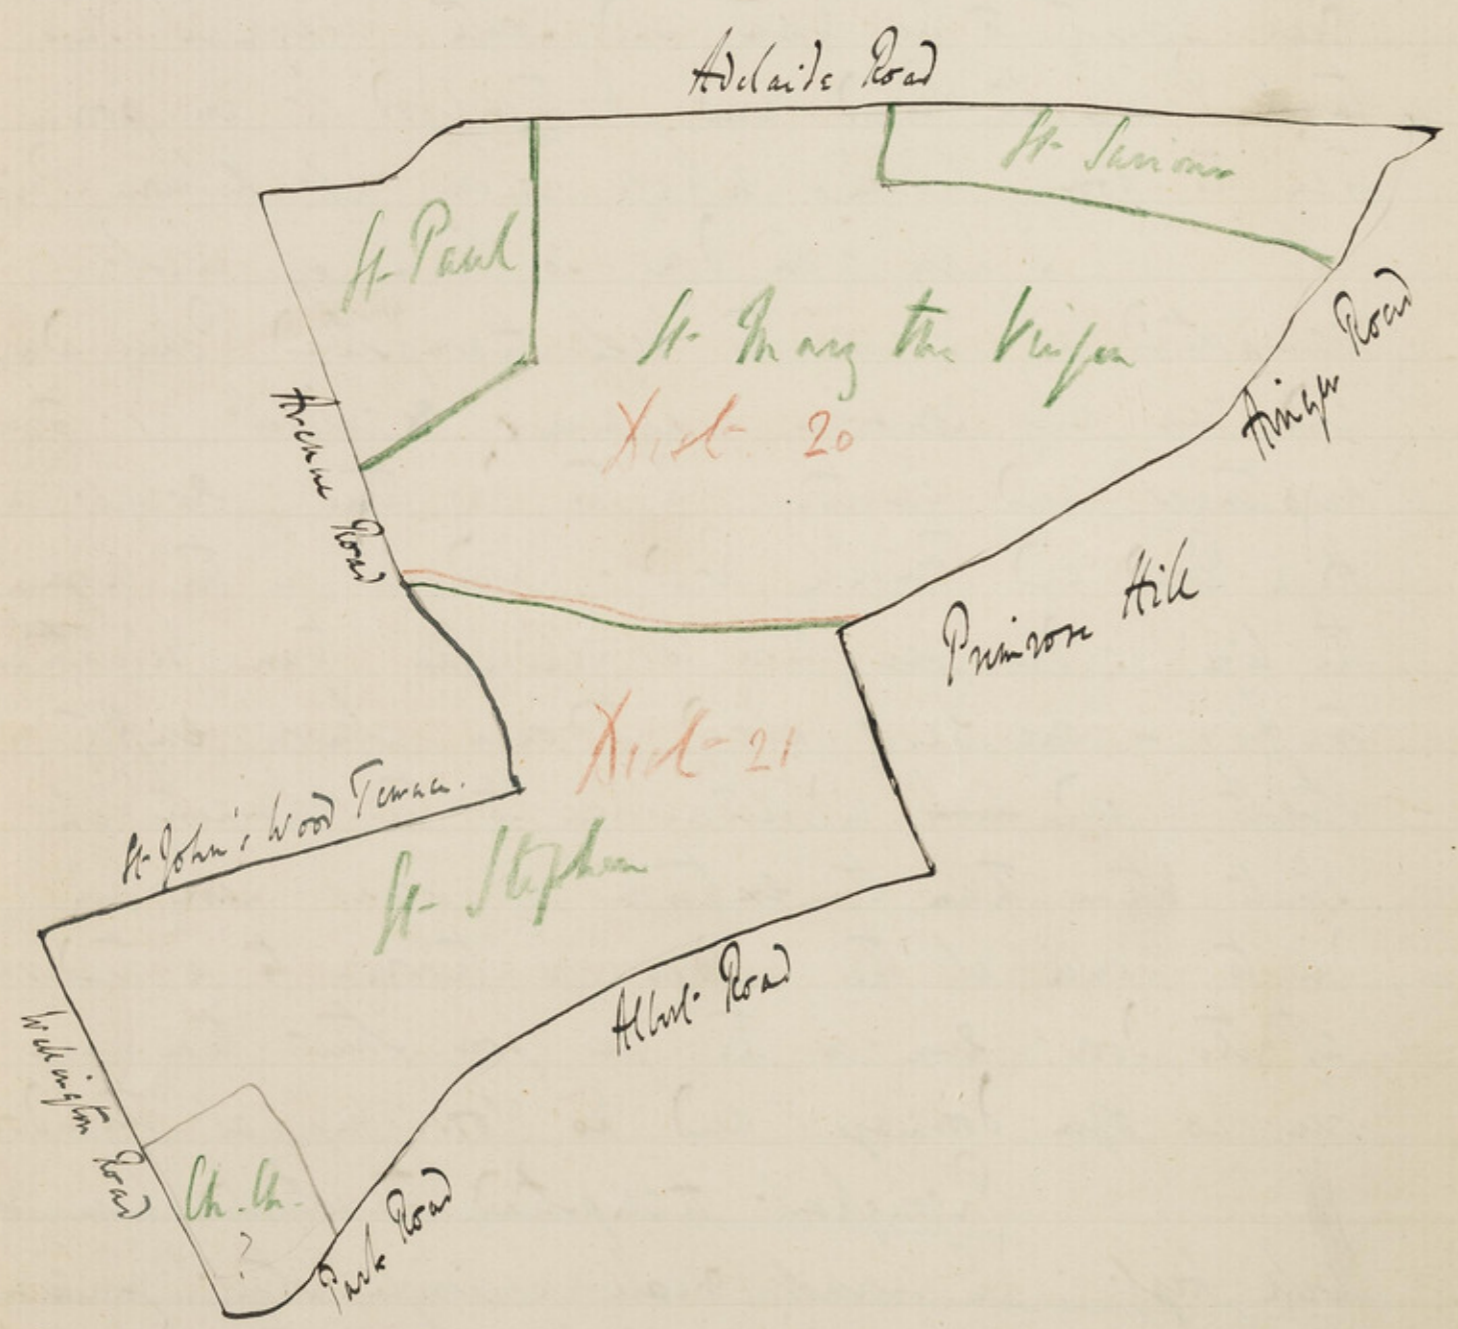 Adelaide Road
St Saviour
St Paul
St Mary the Virgin
Dist. 20
Avenue Road
Ainger Road
Primrose Hill
Dist 21
St John's Wood Terrace.
St Stephen
Albert Road
Wellington Road
Ch. Ch.
?
Park Road